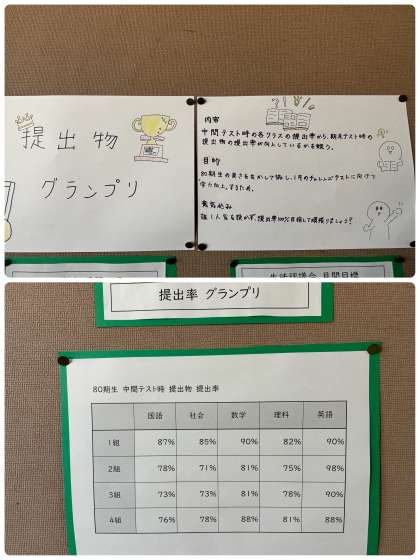 提出物
グランプリ
内容
中間テスト時の各クラスの提出率から、期末テスト時の
提出物の提出率が向上しているかを競う。
目的
80期生の良さを生かして協し、1月のチャレンジテストに向けて
学力向上。するため。
意気込み
誰1人気を抜かず、提出率100%目指して頑張りましょう!
生徒評議会 月間目標
提出率 グランプリ
80期生 中間テスト時 提出物 提出率
国語 社会 数学 理科 英語
1組 87% 85% 90% 82% 90%
2組 78% 71% 81% 75% 98%
3組 73% 73% 81% 78% 90%
4組 76% 78% 88% 81% 88%